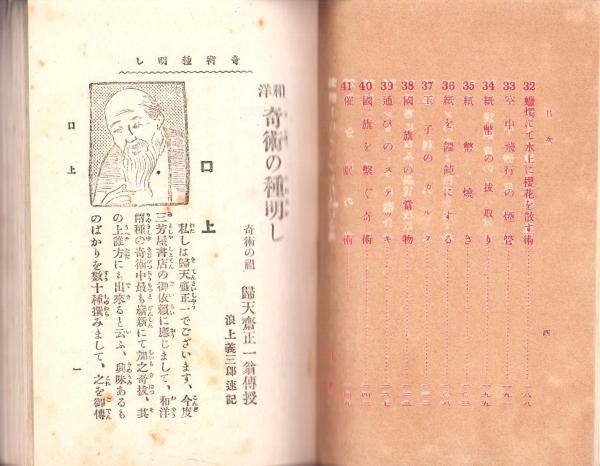 目次
四
32 蠟燭にて水上に櫻花を散す術
33 空中飛行の煙管
34 紙幣の拔取り
35 紙幣燒き
36 紙を饂飩にする
37 玉子のカルタ
38 國旗の當物
39 通ひのステッキ
40 國旗を繫ぐ奇術
41 催眠術
奇術種明し
和洋 奇術の種明し
奇術の祖 歸天齋正一翁傳授
浪上義三郎速記
口上
私しは歸天齋正一でございます、今度
三芳屋書店の御依賴に應じまして、和洋
兩種の奇術中最も嶄新にて加之奇拔、其
の上誰方にも出來ると云ふ、興味あるも
のばかりを數十種撰みまして、之を御傳
口上
一